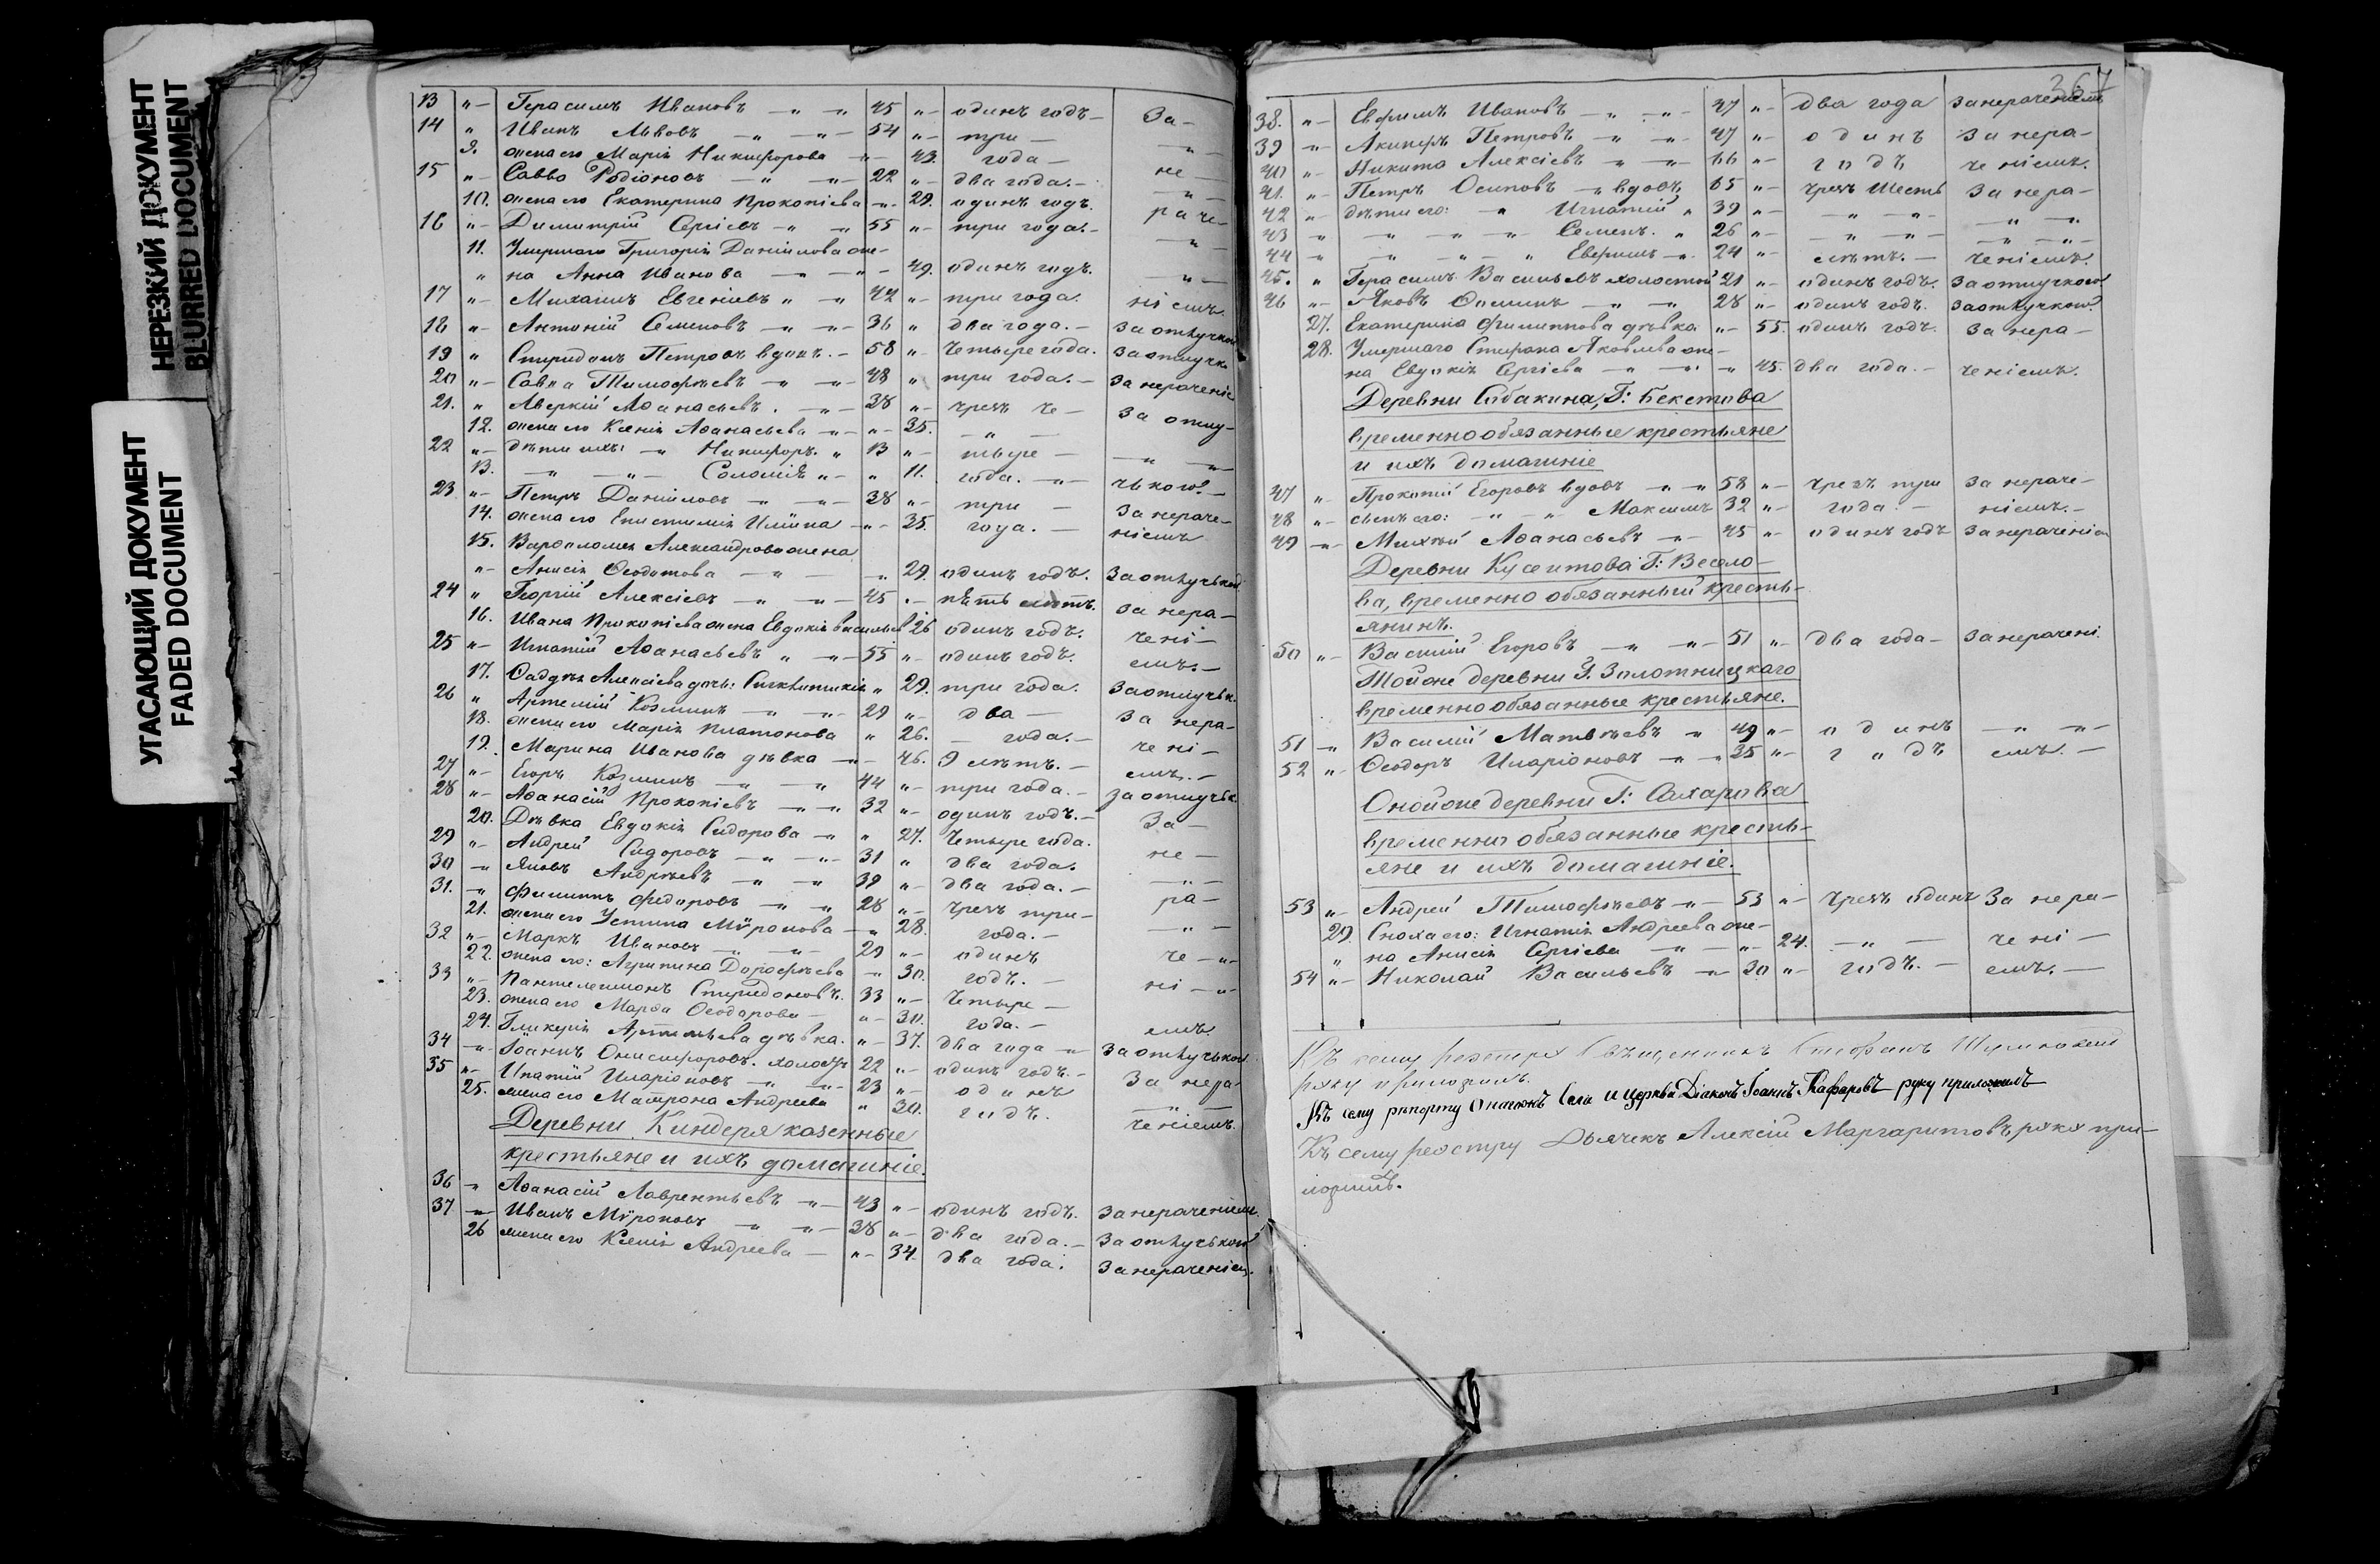 НЕРЕЗКИЙ ДОКУМЕНТ
BLURRED DOCUMENT
УГАСАЮЩИЙ ДОКУМЕНТ
FADED DOCUMENT
13 „ Герасимъ Ивановъ 45 „ одинъ годъ За-
14 „ Иванъ Львовъ 54 „ три
9. жена его Марія Никифорова „ 43. года
15 „ Савва Родіоновъ 22 „ два года. не
10. жена его Екатерина Прокопіева „ 29. одинъ годъ.
16 „ Димитрій Сергіевъ 55 „ три года. раче-
11. Умершаго Григорія Даніилова же-
„ на Анна Иванова „ 49. одинъ годъ.
17 „ Михаилъ Евгеніевъ 42 „ три года. ніемъ
18 „ Антоній Семеновъ 36 „ два года. За отлучкой
19 „ Спиридонъ Петровъ вдовъ. 58 „ Четыре года. За отлучк.
20 „ Савва Тимофѣевъ 48 „ три года. За нераченіе
21. „ Аверкій Аѳанасьевъ. 38 „ чрезъ че- За отлу-
12. жена его Ксенія Аѳанасьева „ 35.
22 „ дѣти ихъ: Никифоръ. 13 „ тыре
13. Соломія „ 11. года. чькой.
23 „ Петръ Даніиловъ 38 „ три За нераче-
14. жена его Епистимія Иліина „ 35. года. ніемъ
15. Варѳоломея Александрова жена
„ Анисія Ѳеодотова „ 29. одинъ годъ. За отлучькой
24 „ Георгій Алексіевъ 45 „ пѣть лѣтъ. За нера-
16. Ивана Прокопіева жена Евдокія Васильев 26 одинъ годъ. чені-
25 „ Игнатій Аѳанасьевъ 55 „ одинъ годъ. емъ.
17. Алексіева дочь: „ 29. три года. За отлучьк.
26 „ Артемій Козминъ 29 „ два За нера-
18. жена его Марія Платонова „ 26. года. чені-
19. Марина Иванова дѣвка „ 46. 9 лѣтъ. емъ.
27 „ Егоръ Козминъ 44 „ три года. За отлучьк.
28 „ Аѳанасій Прокопіевъ 32 „ одинъ годъ. За-
20. Дѣвка Евдокія Сидорова „ 27. Четыре года.
29 „ Андрей Сидоровъ 31 „ два года. не
30 „ Яковъ Андрѣевъ 39 „ два года.
31. „ Филиппъ Федоровъ 28 „ чрезъ три ра-
21. жена его Устина Мѵронова „ 28. года.
32 „ Маркъ Ивановъ 29 „ одинъ че
22. жена его: Агрипина Дорофѣева „ 30. годъ.
33 „ Пантелеимонъ Спиридоновъ. 33 „ Четыре ні
23. жена его Марѳа Ѳеодорова „ 30. года.
24. Гликерія Артемьева дѣвка. „ 37. два года емъ.
34 „ Іоаннъ Онисифоровъ. холостъ 22 „ одинъ годъ. За отлучькой
35 „ Ипатій Иларіоновъ 23 „ одинъ За нера-
25. жена его Матрона Андреева „ 30. годъ. ченіемъ.
Деревни Киндеря казенные
крестьяне и ихъ домашніе.
36 „ Аѳанасій Лаврентьевъ 43 „ одинъ годъ. За нераченіемъ.
37 „ Иванъ Мѵроновъ 38 „ два года. За отлучькой
26 жена его Ксенія Андреева „ 34. два года. За нераченіем.
367
38. „ Евфимъ Ивановъ 47 „ два года За нераченіемъ
39 „ Акинфъ Петровъ 47 „ одинъ За нера-
40 „ Никита Алексіевъ 66 „ годъ ченіемъ.
41. „ Петръ Осиповъ вдовъ 65 „ чрезъ Шесть За нера-
42 „ дѣти его: Игнатій 39 „
43 „ Семенъ. 26 „
44 „ Евфимъ 24 „ лѣтъ. ченіемъ.
45. „ Герасимъ Васильевъ холостой 21 „ одинъ годъ. За отлучкой
46 „ Яковъ Ѳоминъ 28 „ одинъ годъ. За отлучкой.
27. Екатерина Филиппова дѣвка „ 55. одинъ годъ. За нера-
28. Умершаго Стефана Яковлева же-
на Евдокія Сергіева „ 45. два года. ченіемъ.
Деревни Собакина, Г: Бекетова
временнообязанные крестьяне
и ихъ домашніе
47 „ Прокопій Егоровъ вдовъ 58 „ чрезъ три За нераче-
48 „ сынъ его: Максимъ 32 „ года. ніемъ.
49 „ Михѣй Аѳанасьевъ 45 „ одинъ годъ За нераченіем
Деревни Кусеитова Г: Весело-
ва, временно обязанный кресть-
янинъ.
50 „ Василій Егоровъ 51 „ два года За нерачені.
Тойже деревни Г. Золотницкаго
временнообязанные крестьяне.
51 „ Василій Матвѣевъ 49 „ одинъ
52 „ Ѳеодоръ Иларіоновъ 35 „ годъ емъ.
Онойже деревни Г: Сахарова
временно обязанные кресть-
яне и ихъ домашніе.
53 „ Андрей Тимофѣевъ 53 „ Чрезъ одинъ За нера-
29. Сноха его: Игнатія Андреева же-
„ на Анисія Сергіева „ 24. чені
54 „ Николай Васильевъ 30 „ годъ. емъ.
Къ сему реэстру Священникъ Стефанъ
руку приложилъ.
Къ сему рапорту Села и церкви Діаконъ Іоаннъ Кафаровъ руку приложилъ
Къ сему реэстру Дьячекъ Алексій Маргаритовъ руку при-
ложилъ.